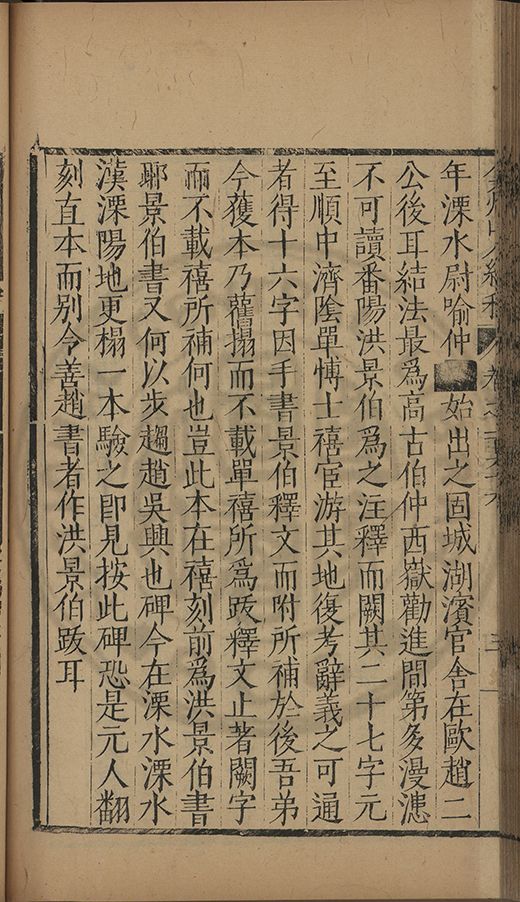 年溧水尉喻仲始出之固城湖濱官舍在歐趙二
公後耳結法最爲高古伯仲西嶽勸進間第多漫漶
不可讀番陽洪景伯爲之注釋而闕其二十七字元
至順中濟陰單愽士禧宦游其地復考辭義之可通
者得十六字因手書景伯釋文而附所補於後吾弟
今獲本乃舊搨而不載單禧所爲跋釋文止著闕字
而不載禧所補何也豈此本在禧刻前爲洪景伯書
耶景伯書又何以步趨趙吳興也碑今在溧水溧水
漢溧陽地更榻一本驗之卽見按此碑恐是元人翻
刻直本而别令善趙書者作洪景伯跋耳